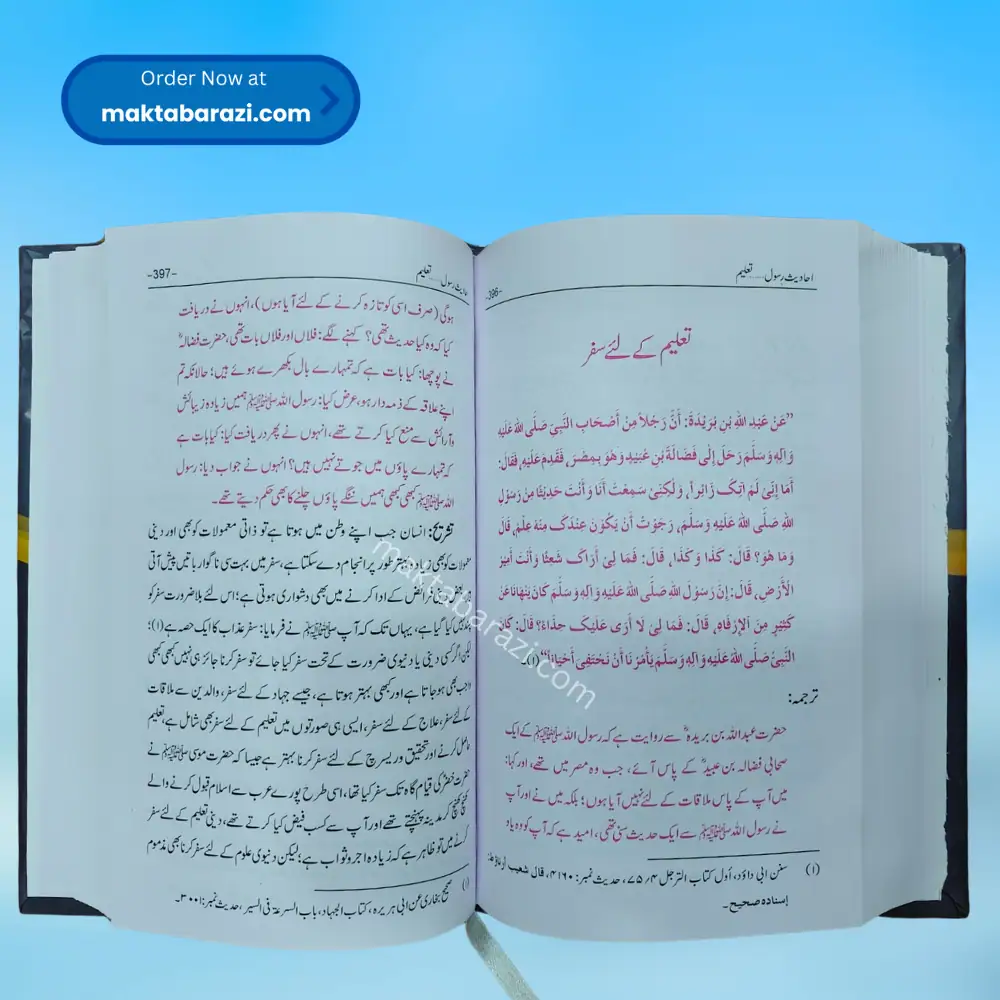 Order Now at
maktabarazi.com
احادیث رسول ..... تعلیم
-396-
تعلیم کے لئے سفر
”عَنْ عَبْدِ اللهِ بْنِ بُرَيْدَةَ: أَنَّ رَجُلاً مِنْ أَصْحَابِ النَّبِيِّ صَلَّى اللهُ عَلَيْهِ
وَآلِهِ وَسَلَّمَ رَحَلَ إِلَى فَضَالَةَ بْنِ عُبَيْدٍ وَهُوَ بِمِصْرَ، فَقَدِمَ عَلَيْهِ، فَقَالَ:
أَمَا إِنِّي لَمْ آتِكَ زَائِراً، وَلَكِنِّي سَمِعْتُ أَنَا وَأَنْتَ حَدِيْثًا مِنْ رَسُوْلِ
اللهِ صَلَّى اللهُ عَلَيْهِ وَسَلَّمَ، رَجَوْتُ أَنْ يَكُوْنَ عِنْدَكَ مِنْهُ عِلْمٌ، قَالَ
وَمَا هُوَ؟ قَالَ: كَذَا وَكَذَا، قَالَ: فَمَا لِيْ أَرَاكَ شَعِثًا وَأَنْتَ أَمِيْرُ
الْأَرْضِ، قَالَ: إِنَّ رَسُوْلَ اللهِ صَلَّى اللهُ عَلَيْهِ وَآلِهِ وَسَلَّمَ كَانَ يَنْهَانَا عَنْ
كَثِيْرٍ مِنَ الْإِرْفَاهِ، قَالَ: فَمَا لِيْ لَا أَرَى عَلَيْكَ حِذَاءً؟ قَالَ: كَانَ
النَّبِيُّ صَلَّى اللهُ عَلَيْهِ وَآلِهِ وَسَلَّمَ يَأْمُرُنَا أَنْ نَحْتَفِيَ أَحْيَاناً“ (۱)
ترجمہ:
حضرت عبداللہ بن بریدہؓ سے روایت ہے کہ رسول اللہ ﷺ کے ایک
صحابی فضالہ بن عبیدؓ کے پاس آئے، جب وہ مصر میں تھے، اور کہا:
میں آپ کے پاس ملاقات کے لئے نہیں آیا ہوں؛ بلکہ میں نے اور آپ
نے رسول اللہ ﷺ سے ایک حدیث سنی تھی، امید ہے کہ آپ کو وہ یاد
(۱) سنن ابی داؤد، أول کتاب الترجل ۷۵/۴، حدیث نمبر: ۴۱۶۰، قال شعيب
إسناده صحيح۔
رسول ..... تعلیم
-397-
ہوگی (صرف اسی کو تازہ کرنے کے لئے آیا ہوں)، انہوں نے دریافت
کیا کہ وہ کیا حدیث تھی؟ کہنے لگے: فلاں اور فلاں بات تھی، حضرت فضالہؓ
نے پوچھا: کیا بات ہے کہ تمہارے بال بکھرے ہوئے ہیں؛ حالانکہ تم
اپنے علاقہ کے ذمہ دار ہو، عرض کیا: رسول اللہ ﷺ ہمیں زیادہ زیبائش
وآرائش سے منع کیا کرتے تھے، انہوں نے پھر دریافت کیا: کیا بات ہے
کہ تمہارے پاؤں میں جوتے نہیں ہیں؟ انہوں نے جواب دیا: رسول
اللہ ﷺ کبھی کبھی ہمیں ننگے پاؤں چلنے کا بھی حکم دیتے تھے۔
تشریح: انسان جب اپنے وطن میں ہوتا ہے تو ذاتی معمولات کو بھی اور دینی
معمولات کو بھی زیادہ بہتر طور پر انجام دے سکتا ہے، سفر میں بہت سی ناگوار باتیں پیش آتی
فرائض کے ادا کرنے میں بھی دشواری ہوتی ہے؛ اس لئے بلا ضرورت سفر کو
کیا گیا ہے، یہاں تک کہ آپ ﷺ نے فرمایا: سفر عذاب کا ایک حصہ ہے (۱)؛
لیکن اگر کسی دینی یا دنیوی ضرورت کے تحت سفر کیا جائے تو سفر کرنا جائز ہی نہیں کبھی کبھی
واجب بھی ہو جاتا ہے اور کبھی بہتر ہوتا ہے، جیسے جہاد کے لئے سفر، والدین سے ملاقات
کے لئے سفر، علاج کے لئے سفر، ایسی ہی صورتوں میں تعلیم کے لئے سفر بھی شامل ہے، تعلیم
حاصل کرنے اور تحقیق و ریسرچ کے لئے سفر کرنا بہتر ہے جیسا کہ حضرت موسیٰ ﷺ نے
حضرت خضرؑ کی قیام گاہ تک سفر کیا تھا، اسی طرح پورے عرب سے اسلام قبول کرنے والے
کھنچ کھنچ کر مدینہ پہنچتے تھے اور آپ سے کسب فیض کیا کرتے تھے، دینی تعلیم کے لئے سفر
کرنے میں تو ظاہر ہے کہ زیادہ اجر و ثواب ہے؛ لیکن دنیوی علوم کے لئے سفر کرنا بھی مذموم
(۱) صحیح بخاری عن ابی ہریرہ، کتاب الجہاد، باب السرعۃ فی السیر، حدیث نمبر: ۳۰۰۱۔
maktabarazi.com